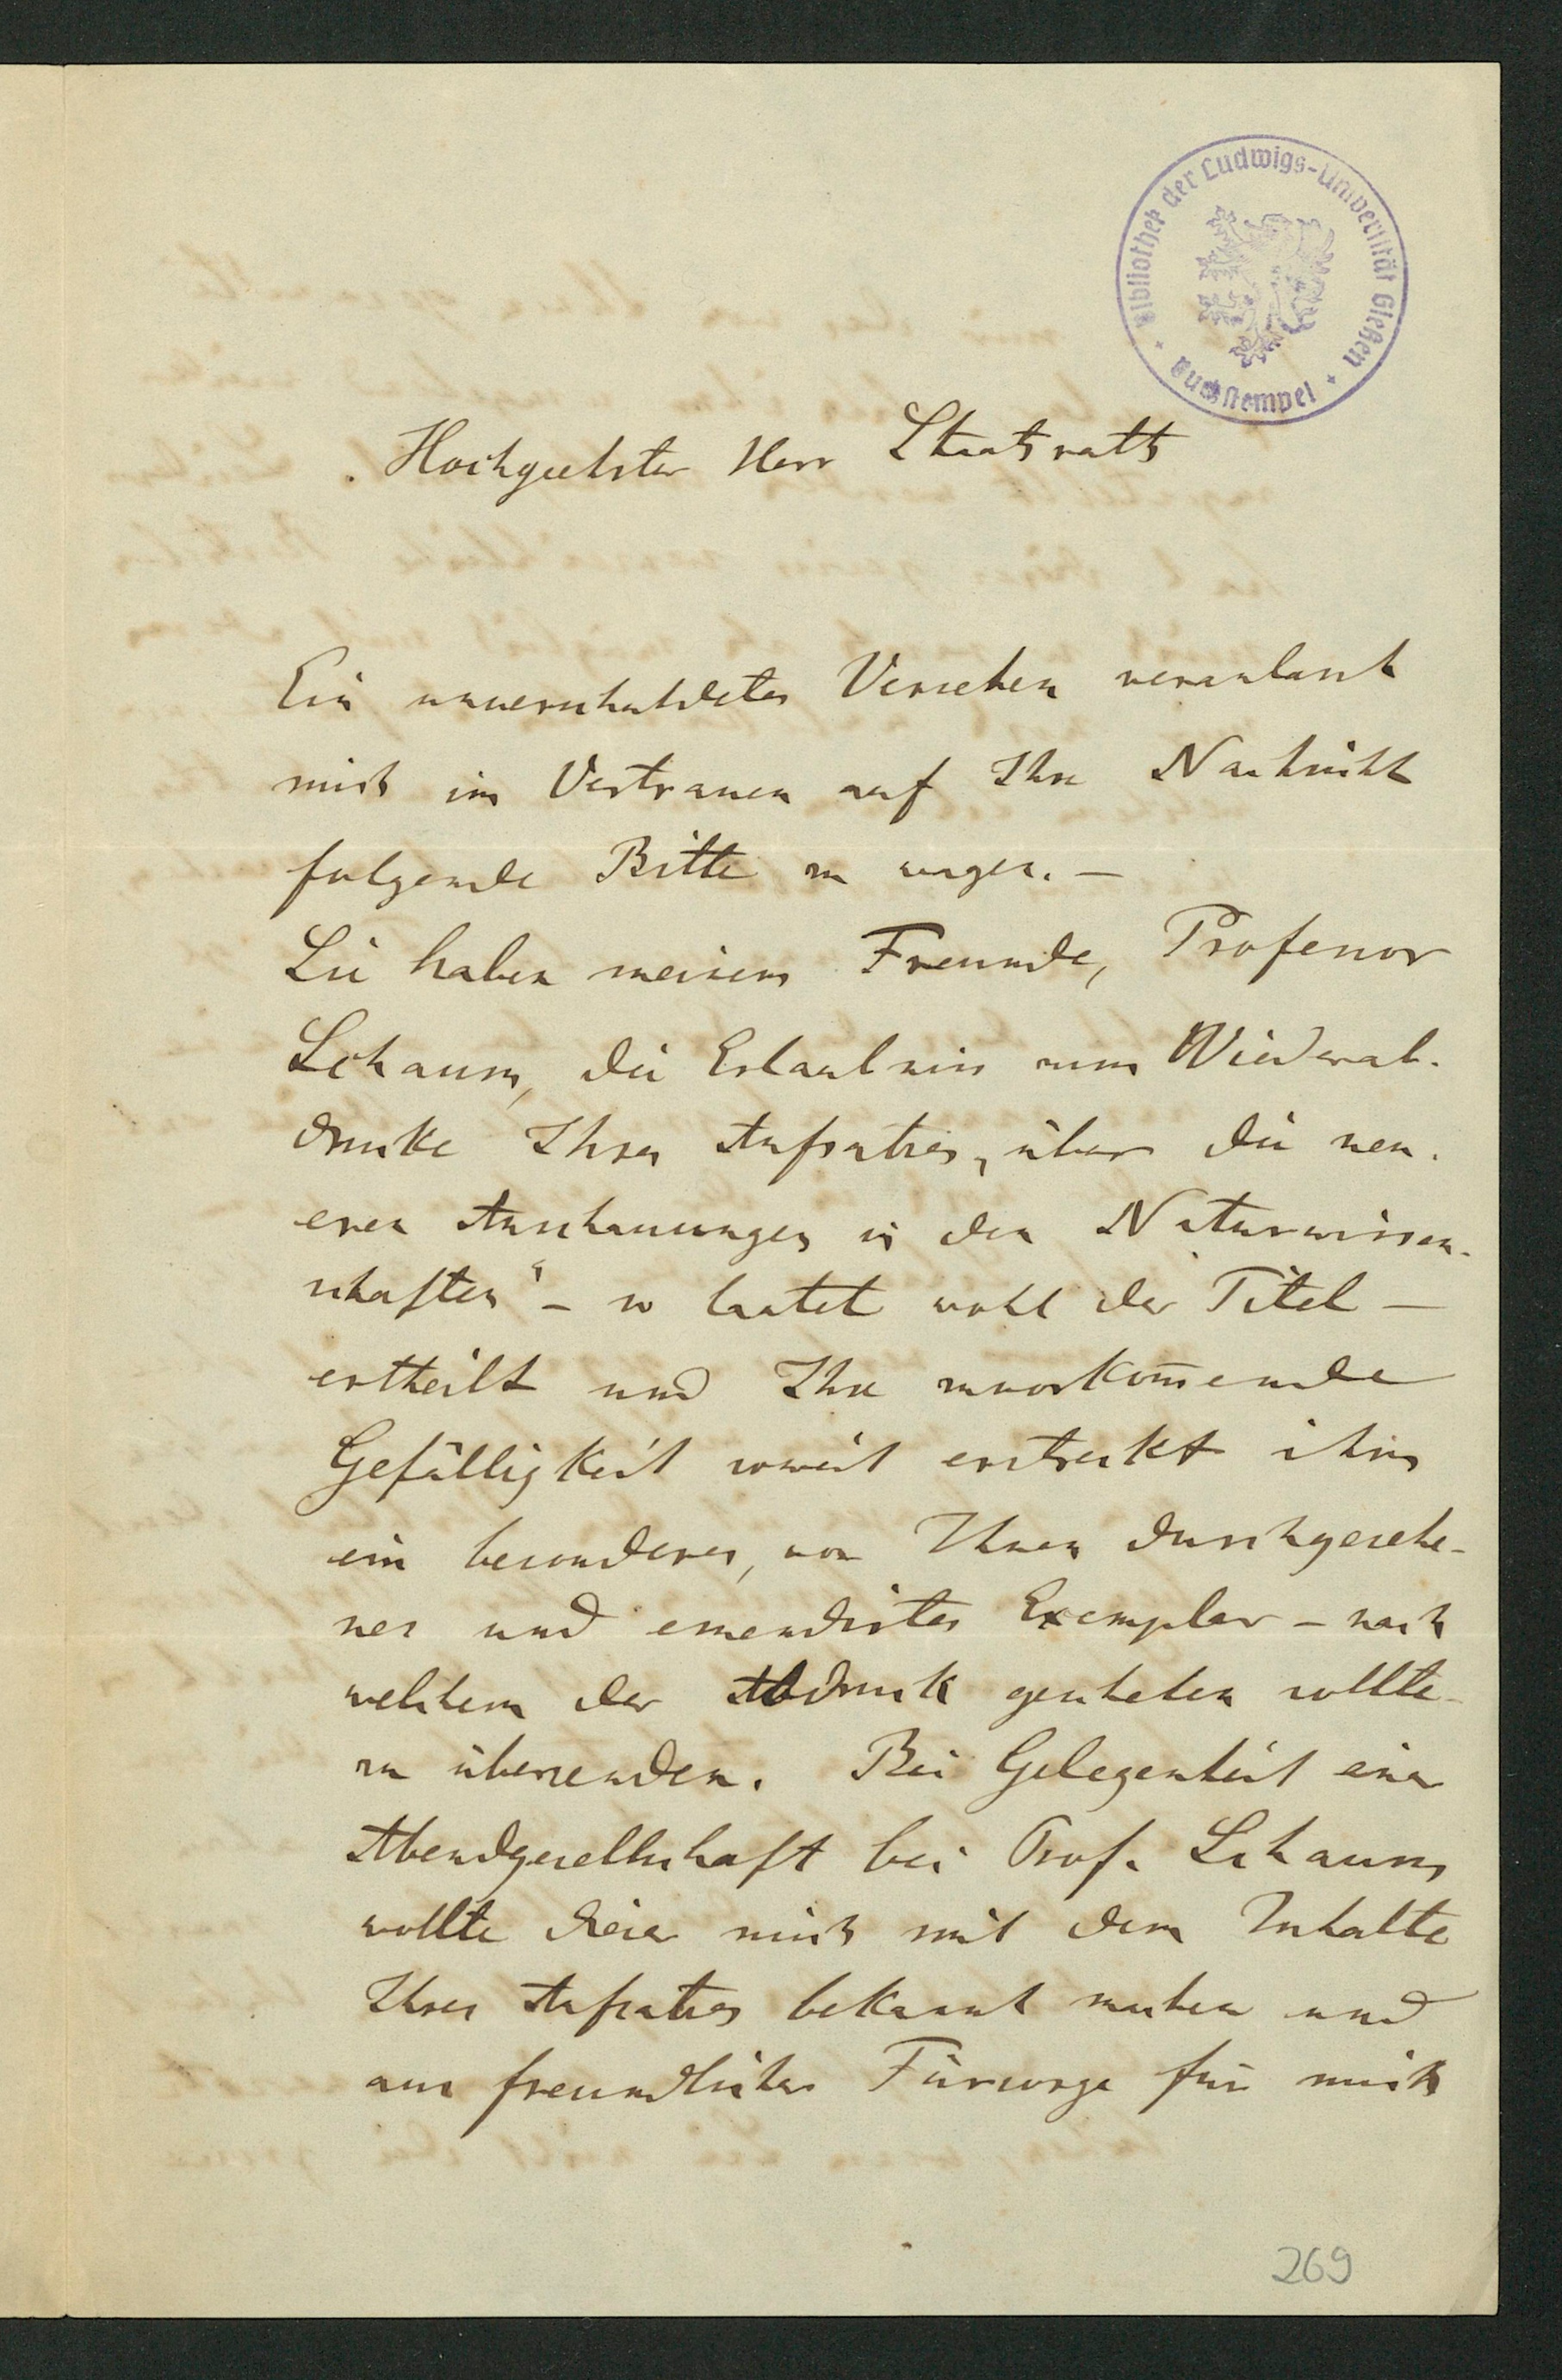 Bibliothek der Ludwigs-Universität Gießen
Buchstempel
Hochgeehrter Herr Staatsrath
Ein unverschuldetes Versehen veranlasst
mich im Vertrauen auf Ihre Nachsicht
folgende Bitte zu wagen. —
Sie haben meinem Freunde, Professor
Schaum, die Erlaubniss zum Wiederab-
drucke Ihres Aufsatzes „über die neu-
eren Anschauungen in den Naturwissen-
schaften“ – so lautet wohl der Titel —
ertheilt und Ihre zuvorkom̅ende
Gefälligkeit soweit erstreckt ihm
ein besonderes, von Ihnen durchgesehe-
nes und emendirtes Exemplar – nach
welchem der Abdruck geschehen sollte –
zu übersenden. Bei Gelegenheit einer
Abendgesellschaft bei Prof. Schaum
wollte dieser mich mit dem Inhalte
Ihres Aufsatzes bekannt machen und
aus freundlicher Fürsorge für mich
269